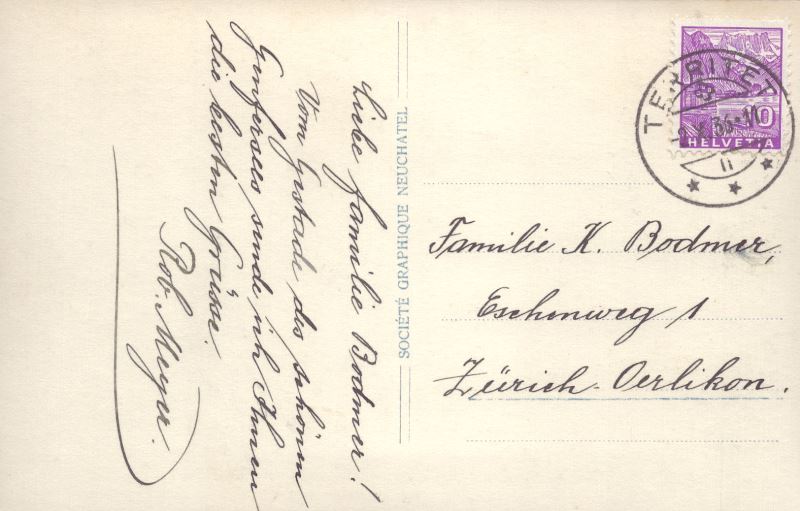 Liebe Familie Bodmer!
Vom Gestade des schönen
Genfersees sende ich Ihnen
die besten Grüsse.
Rob. Meyer.
SOCIÉTÉ GRAPHIQUE NEUCHATEL
TERRITET
10
HELVETIA
Familie K. Bodmer,
Eschenweg 1
Zürich-Oerlikon.